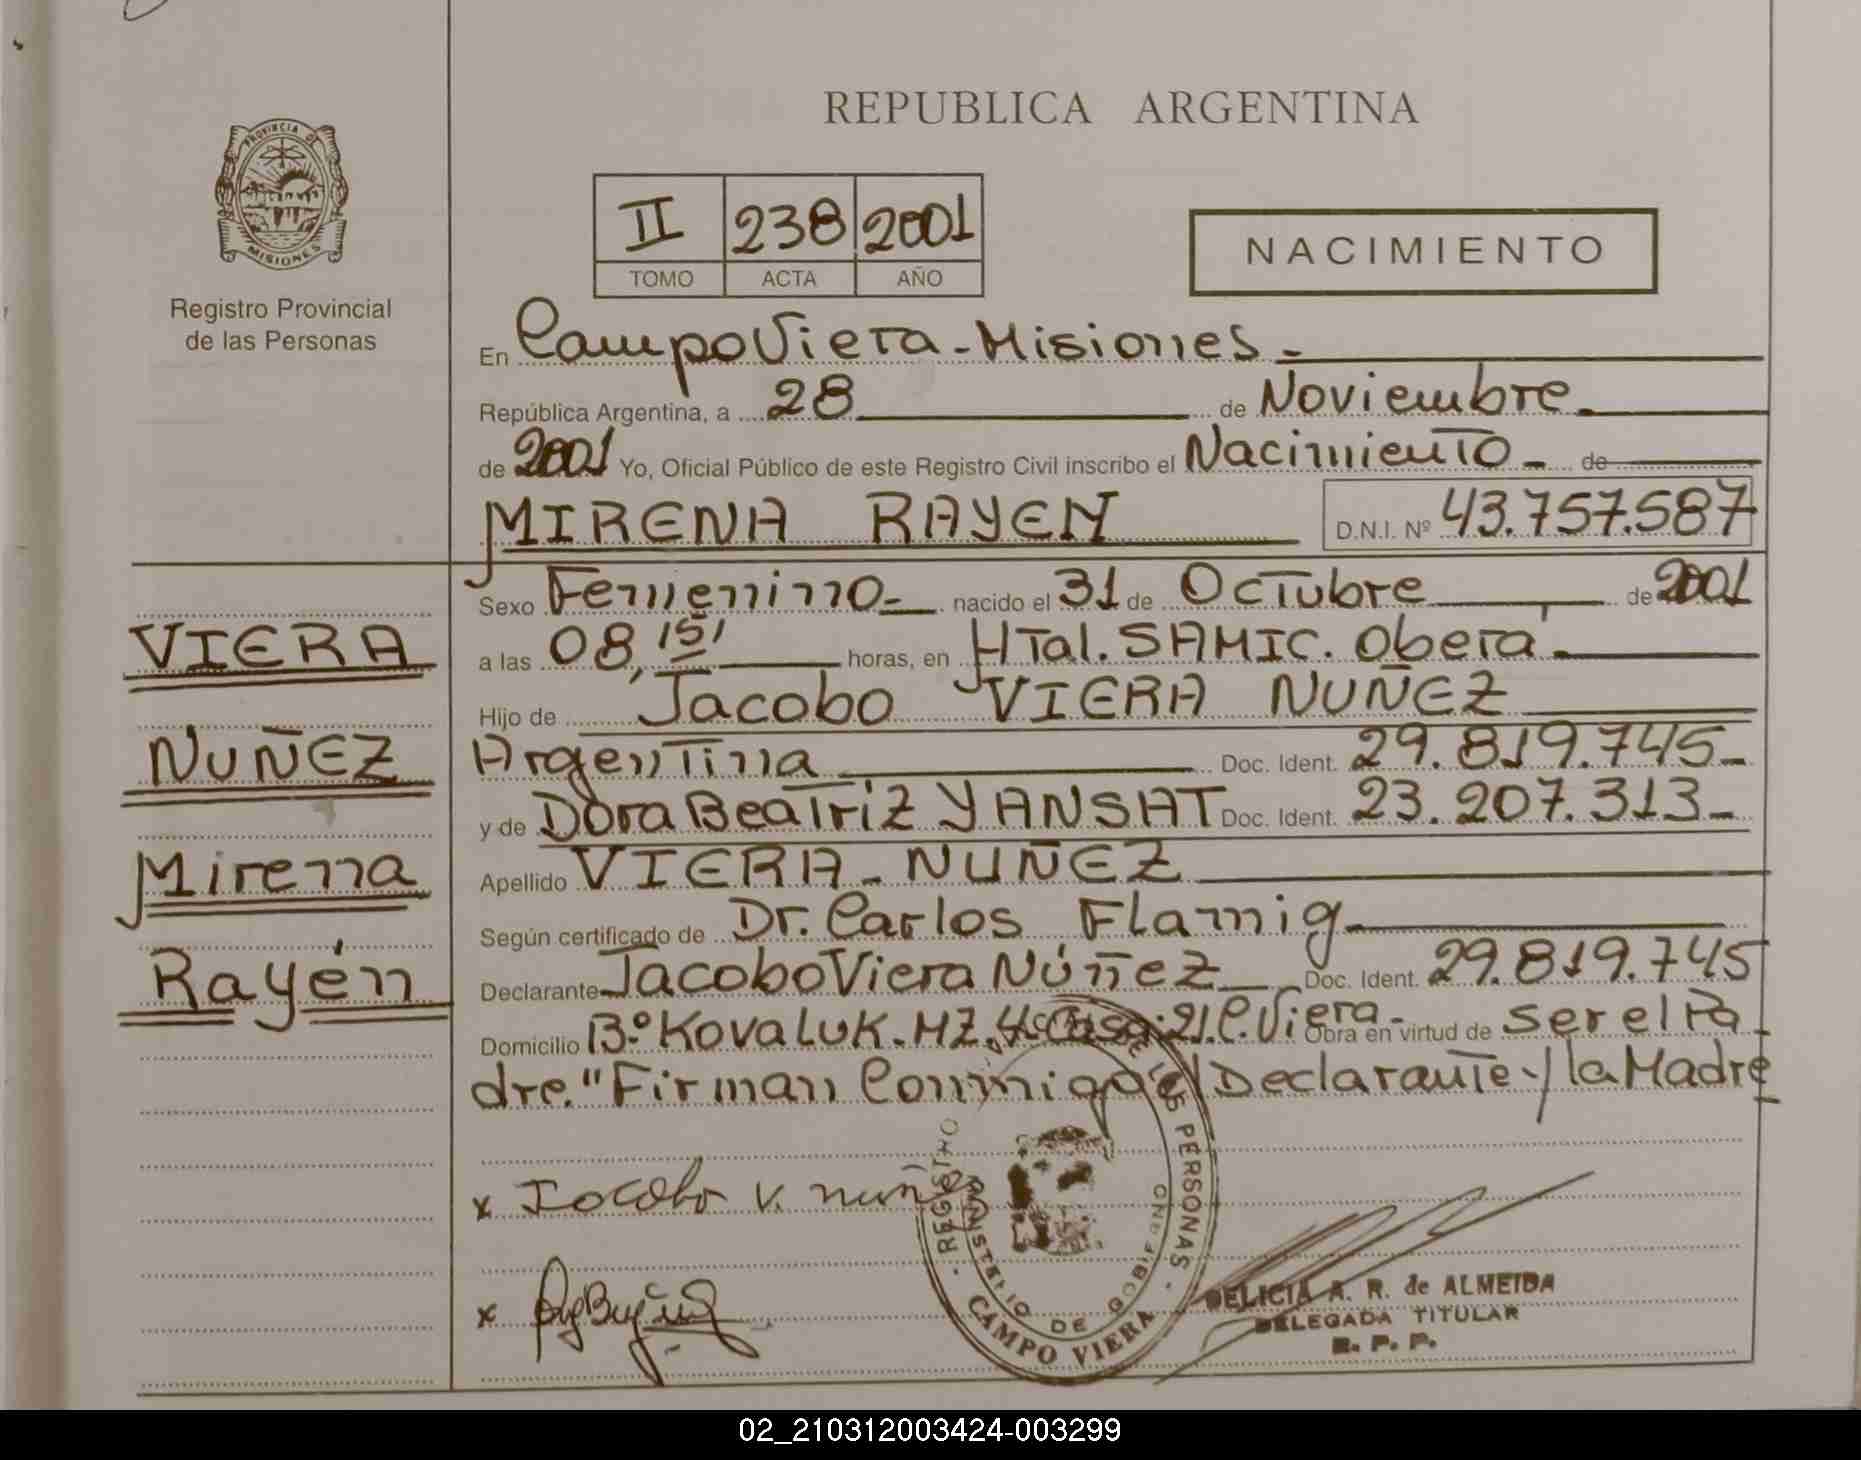 REPUBLICA ARGENTINA
PROVINCIA DE
MISIONES
Registro Provincial
de las Personas
II 238 2001
TOMO ACTA AÑO
NACIMIENTO
En Campo Viera - Misiones -
República Argentina, a 28 de Noviembre
de 2001 Yo, Oficial Público de este Registro Civil inscribo el Nacimiento - de
MIRENA RAYEN D.N.I. Nº 43.757.587
VIERA
NUÑEZ
Mirena
Rayén
Sexo Femenino - nacido el 31 de Octubre de 2001
a las 08,15' horas, en HTal. SAMIC. Oberá -
Hijo de Jacobo VIERA NUÑEZ
Argentina Doc. Ident. 29.819.745 -
y de Dora Beatriz YANSAT Doc. Ident. 23.207.313 -
Apellido VIERA - NUÑEZ
Según certificado de Dr. Carlos Flamig
Declarante Jacobo Viera Núñez Doc. Ident. 29.819.745
Domicilio Bº Kovaluk. MZ. 4. Casa: 21. C. Viera - Obra en virtud de ser el Pa-
dre. "Firman Conmigo el Declarante y la Madre -
x Jocobo V. nuñez
x
REGISTRO DE LAS PERSONAS
MINISTERIO DE GOBIERNO
CAMPO VIERA
DELICIA A. R. de ALMEIDA
DELEGADA TITULAR
R. P. P.
02_210312003424-003299